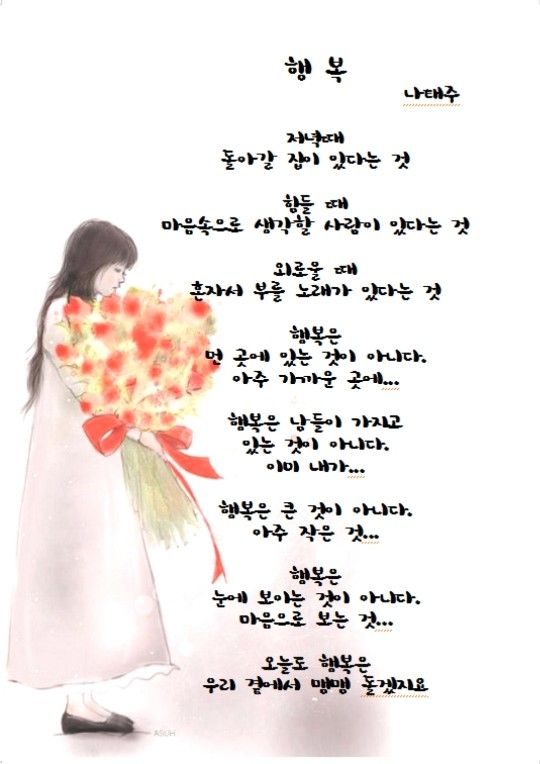 행 복
나태주
저녁때
돌아갈 집이 있다는 것
힘들 때
마음속으로 생각할 사람이 있다는 것
외로울 때
혼자서 부를 노래가 있다는 것
행복은
먼 곳에 있는 것이 아니다.
아주 가까운 곳에...
행복은 남들이 가지고
있는 것이 아니다.
이미 내가...
행복은 큰 것이 아니다.
아주 작은 것...
행복은
눈에 보이는 것이 아니다.
마음으로 보는 것...
오늘도 행복은
우리 곁에서 맴맴 돌겠지요
ASUH